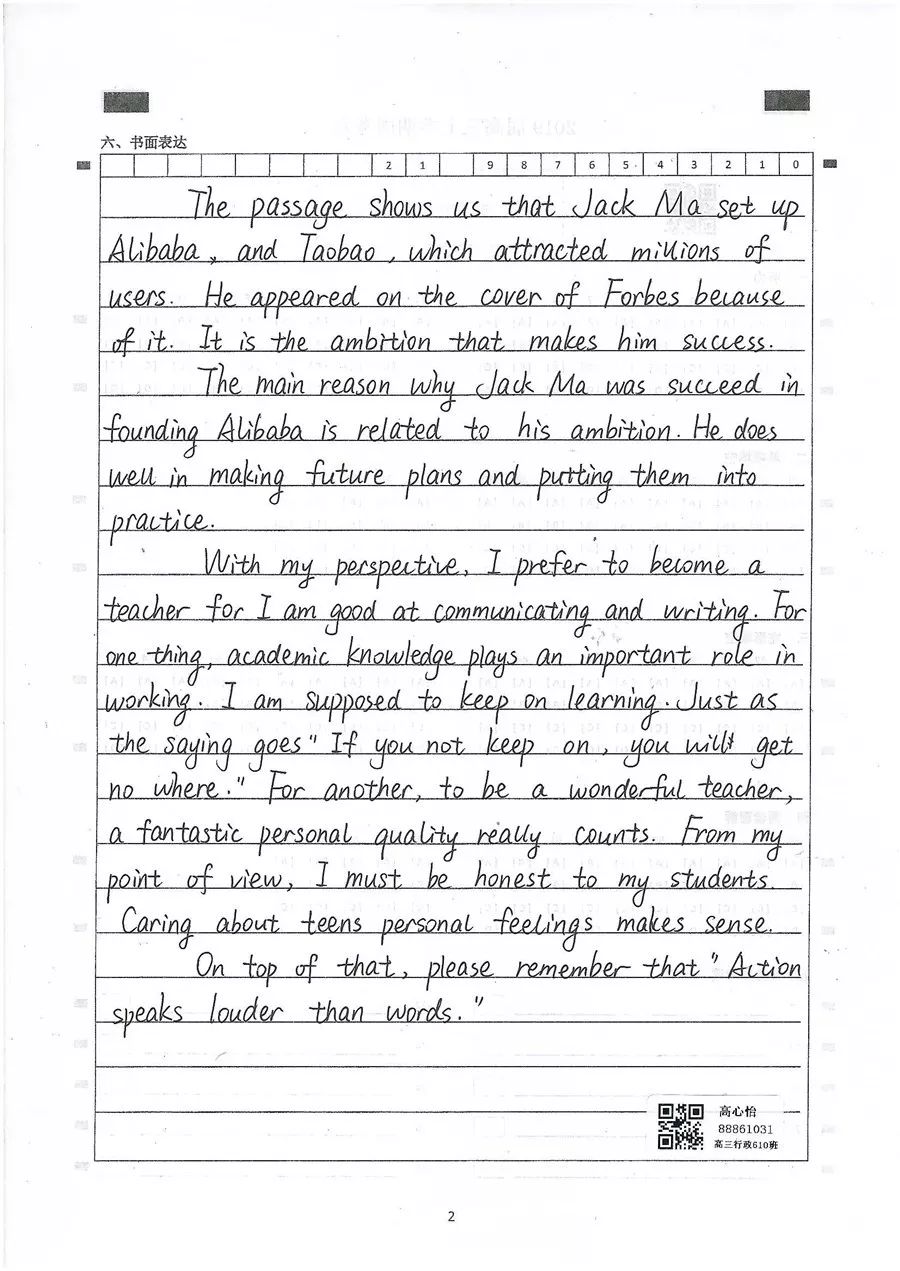 六、书面表达
2 1 9 8 7 6 5 4 3 2 1 0
The passage shows us that Jack Ma set up
Alibaba, and Taobao, which attracted millions of
users. He appeared on the cover of Forbes because
of it. It is the ambition that makes him success.
The main reason why Jack Ma was succeed in
founding Alibaba is related to his ambition. He does
well in making future plans and putting them into
practice.
With my perspective, I prefer to become a
teacher for I am good at communicating and writing. For
one thing, academic knowledge plays an important role in
working. I am supposed to keep on learning. Just as
the saying goes " If you not keep on, you will get
no where." For another, to be a wonderful teacher,
a fantastic personal quality really counts. From my
point of view, I must be honest to my students.
Caring about teens personal feelings makes sense.
On top of that, please remember that " Action
speaks louder than words."
高心怡
88861031
高三行政610班
2